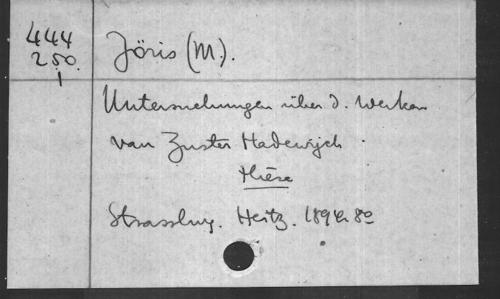 444
250.
1
Jöris (M.).
Untersuchungen über d. Werken
van Zuster Hadewijch.
Thèse
Strassburg. Heitz. 1894. 8º